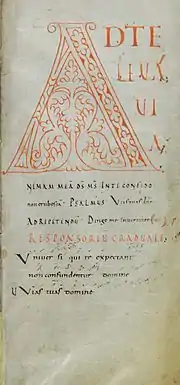 AD TE
LEUA
UI
A
NIMAM MEA DS MS IN TE CONFIDO
non erubescā PSALMUS Vias tuas dn̄e
AD REPETENDŪ Dirige me in veritate
RESPONSORIŪ GRADUALE
Universi qui te expectant
non confundentur domine
V Vias tuas domine